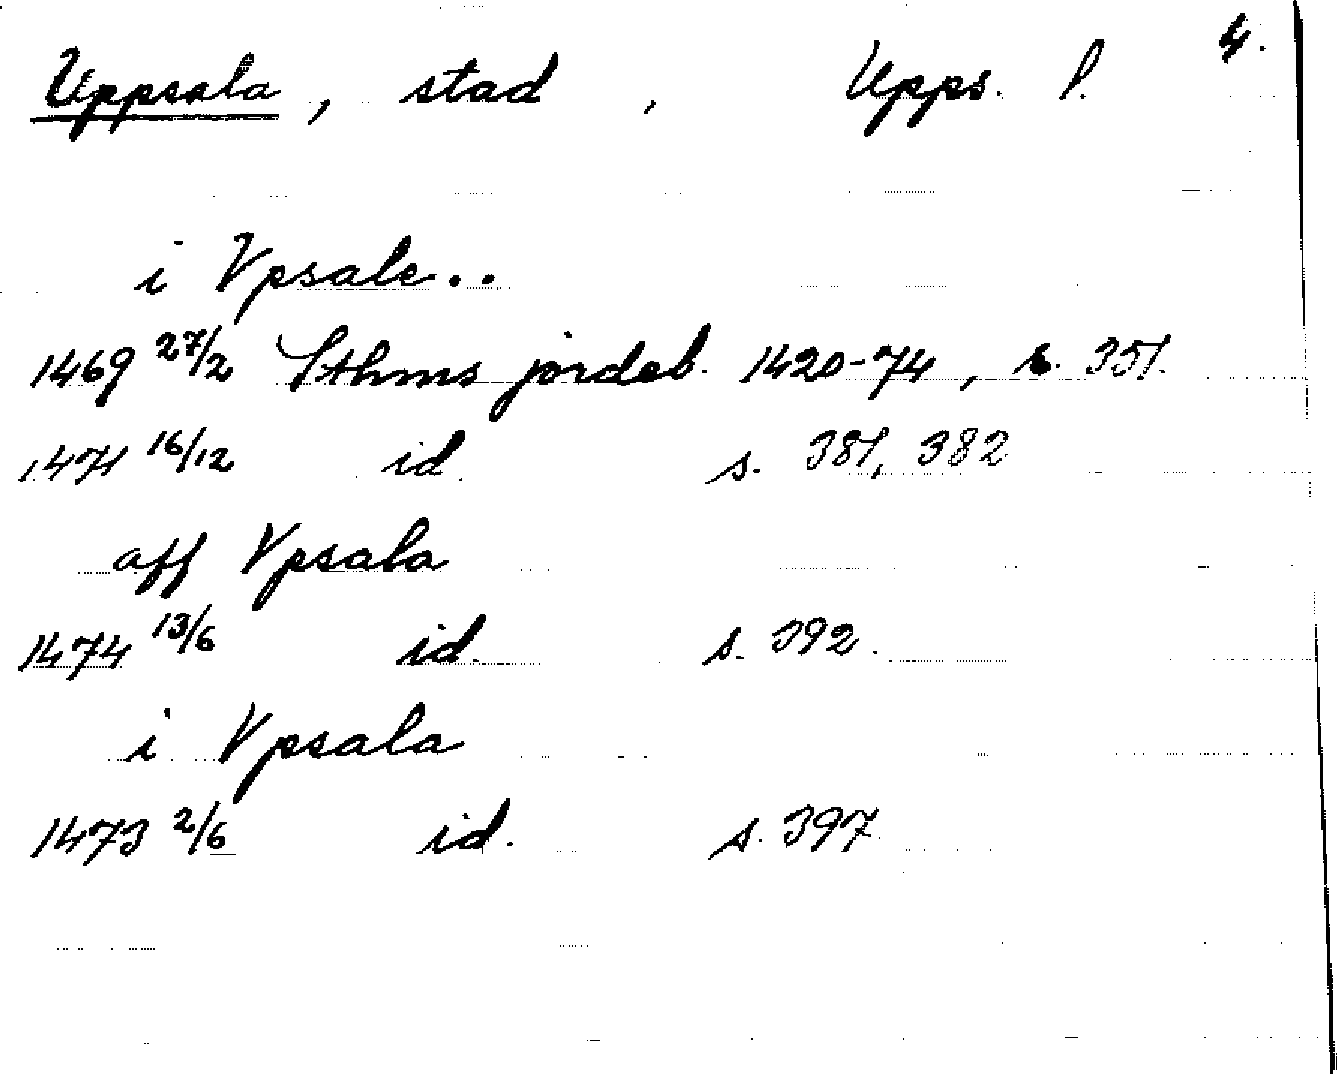 4.
Uppsala, stad, Upps. l.
i Vpsale..
1469 27/2 Sthms jordeb. 1420-74, s. 351.
1474 16/12 id. s. 381, 382
aff Vpsala
1474 13/6 id. s. 392.
i Vpsala
1473 2/6 id. s. 397